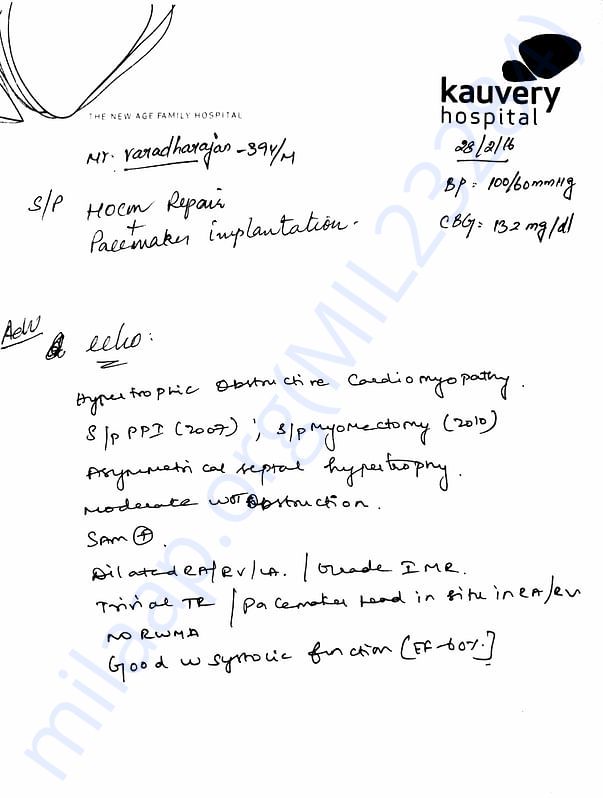 kauvery
hospital
THE NEW AGE FAMILY HOSPITAL
28/2/16
Mr. Varadharajan - 39Y/M
BP: 100/60mmHg
S/P HOCM Repair
+
CBG: 132 mg/dl
Pacemaker implantation.
Adv
echo:
Hypertrophic Obstructive Cardiomyopathy.
S/P PPI (2007) ; S/P Myomectomy (2010)
Asymmetrical septal hypertrophy.
Moderate LVOT Obstruction.
SAM (+).
Dilated RA/RV/LA. / Grade I MR.
Trivial TR / Pacemaker lead in situ in RA/RV
NO RWMA
Good LV systolic function [EF-60%.]
milaap.org(MIL23284)